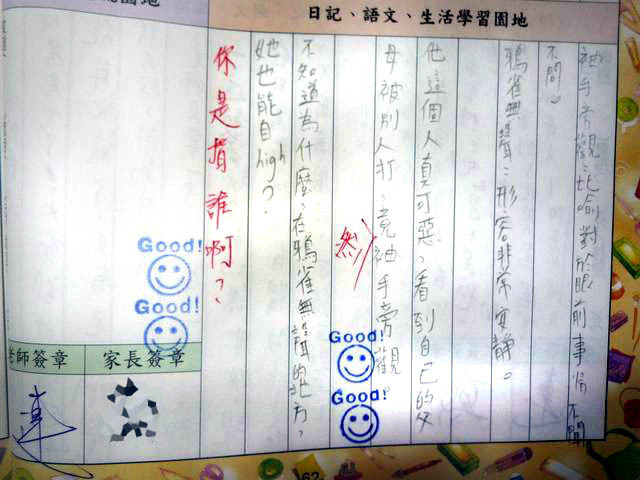 日記、語文、生活學習園地
袖手旁觀:比喻對於眼前事情不聞
不問。
鴉雀無聲:形容非常安靜。
他這個人真可惡,看到自己的父
母被別人打,竟袖手旁觀。
然
不知道為什麼,在鴉雀無聲的地方,
她也能自high?
你是指誰啊?
Good!
Good!
Good!
Good!
老師簽章
家長簽章
62